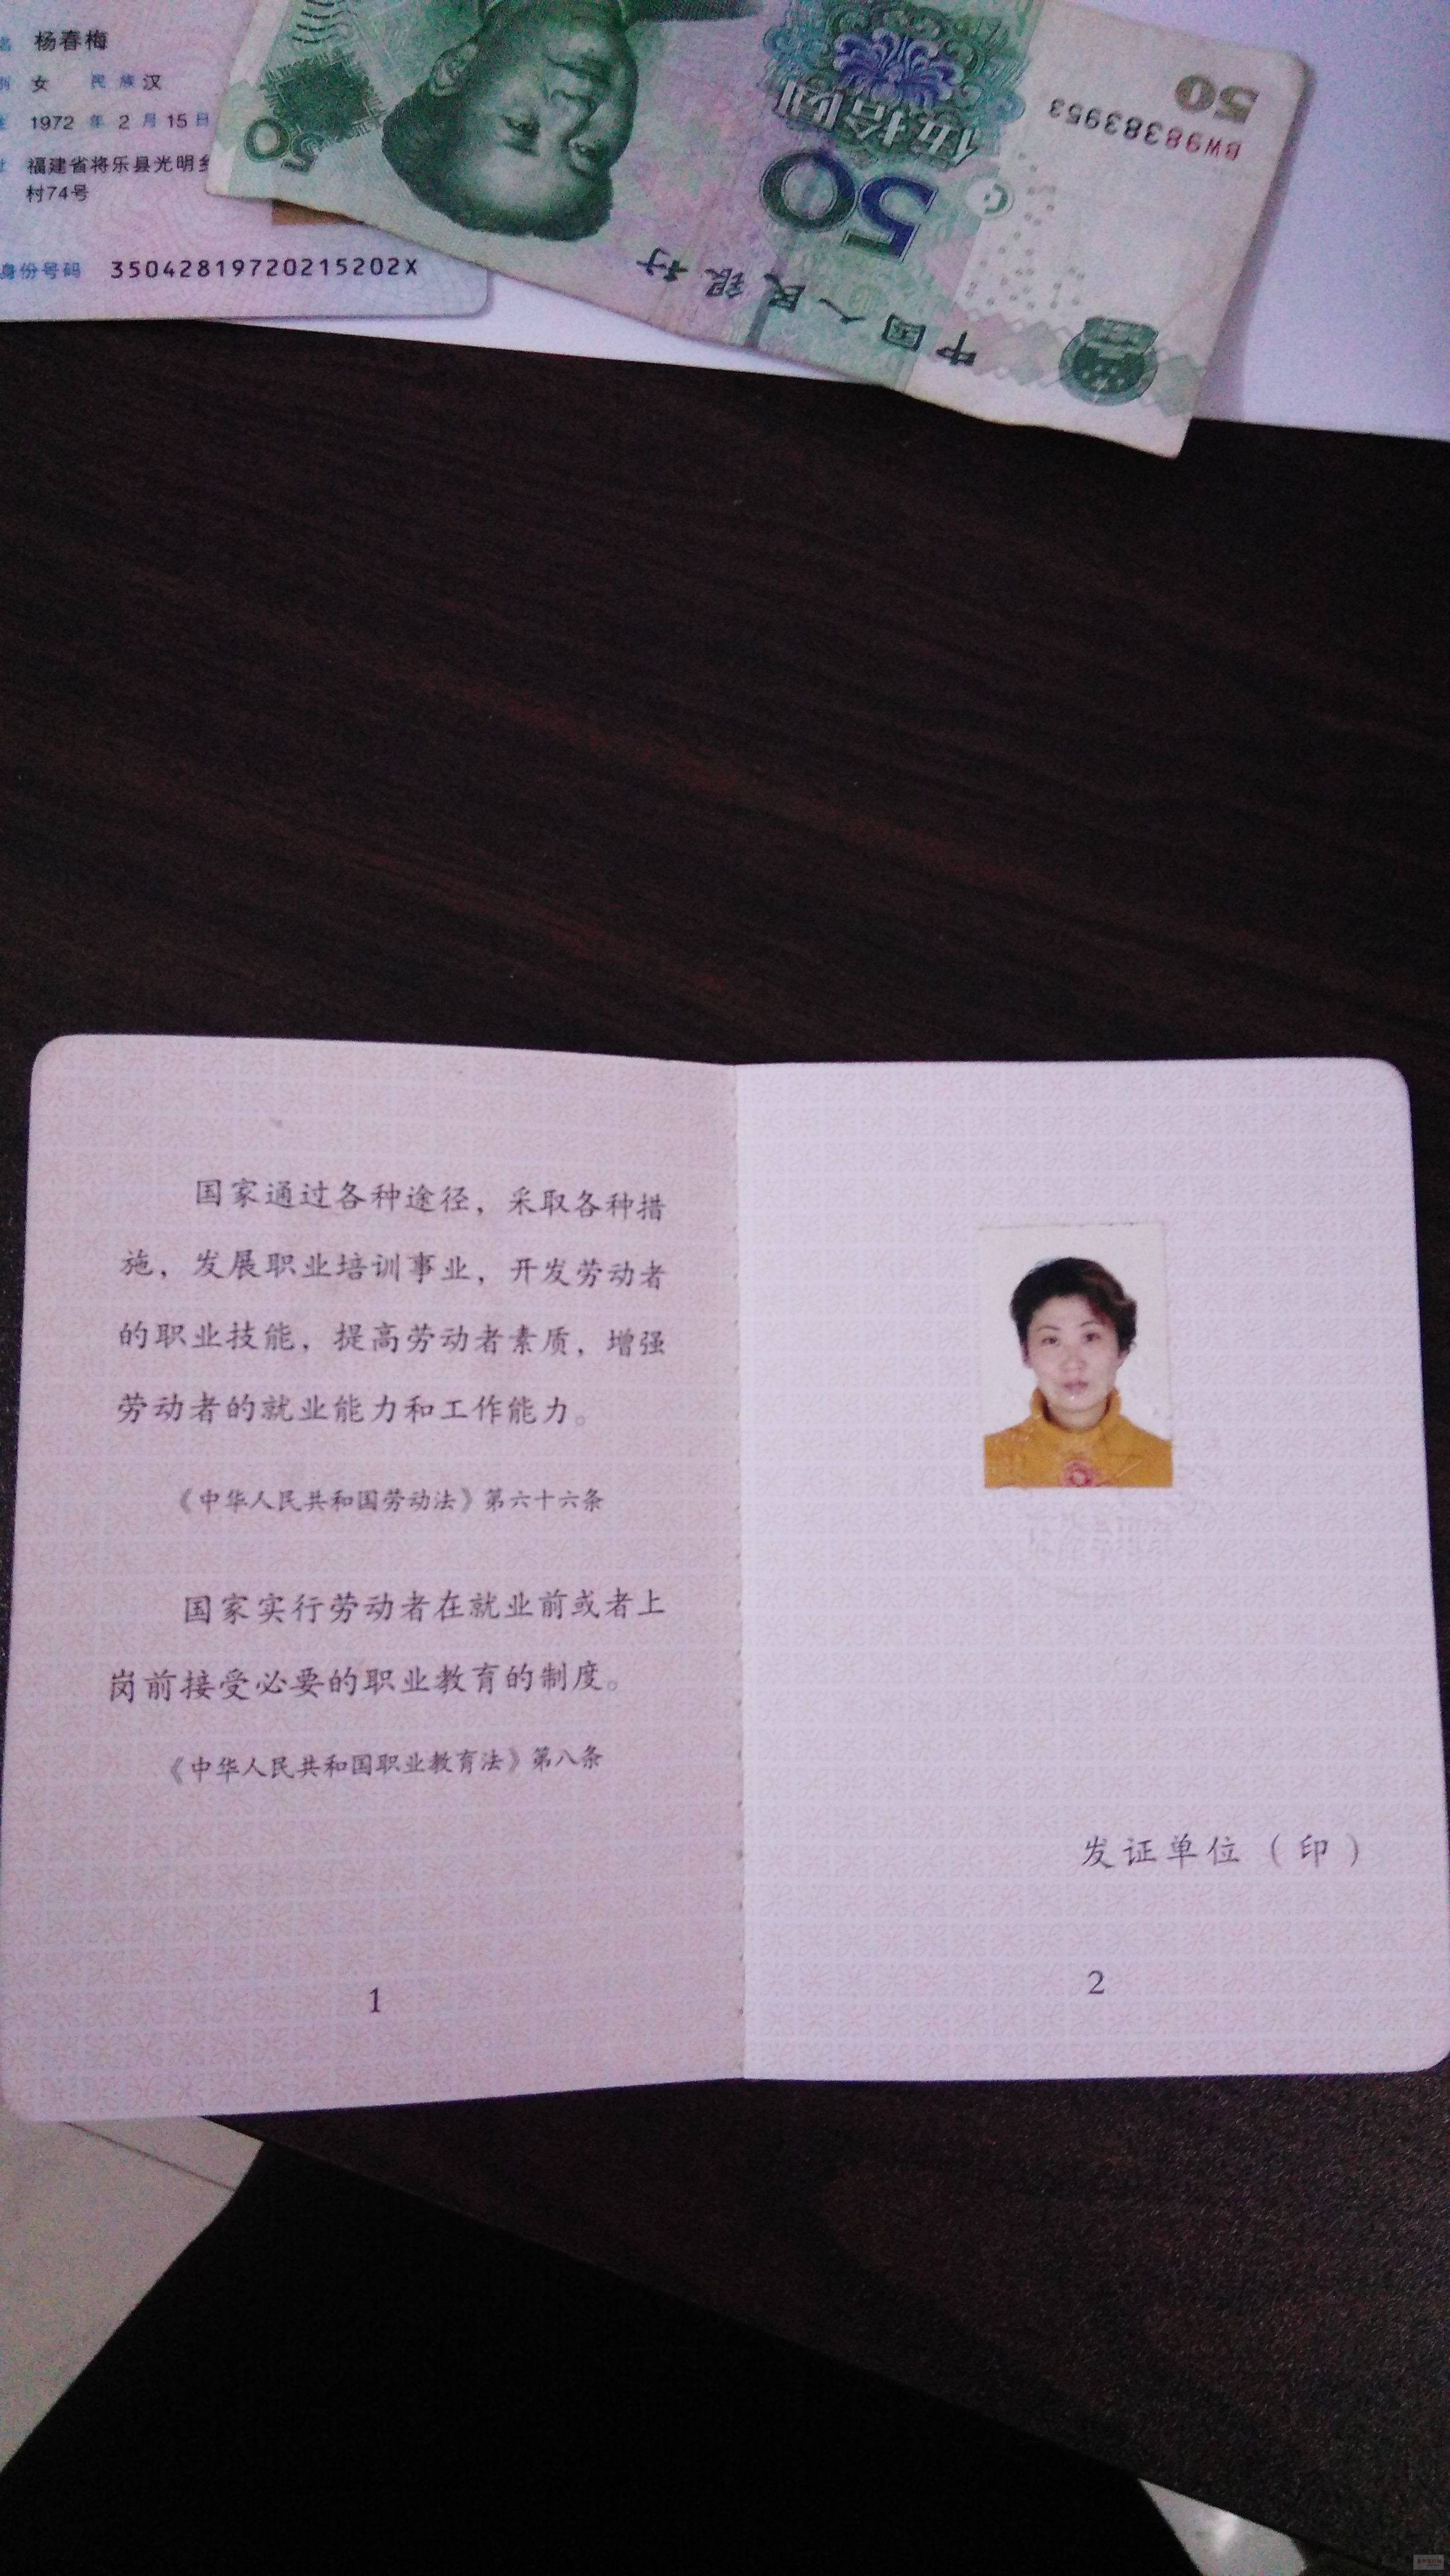 名 杨春梅
别 女 民族 汉
生 1972 年 2 月 15 日
址 福建省将乐县光明乡
村74号
身份号码 35042819720215202X
50
BW98383953
伍拾圆
50
50
中国人民银行
国家通过各种途径，采取各种措
施，发展职业培训事业，开发劳动者
的职业技能，提高劳动者素质，增强
劳动者的就业能力和工作能力。
《中华人民共和国劳动法》第六十六条
国家实行劳动者在就业前或者上
岗前接受必要的职业教育的制度。
《中华人民共和国职业教育法》第八条
1
发证单位（印）
2